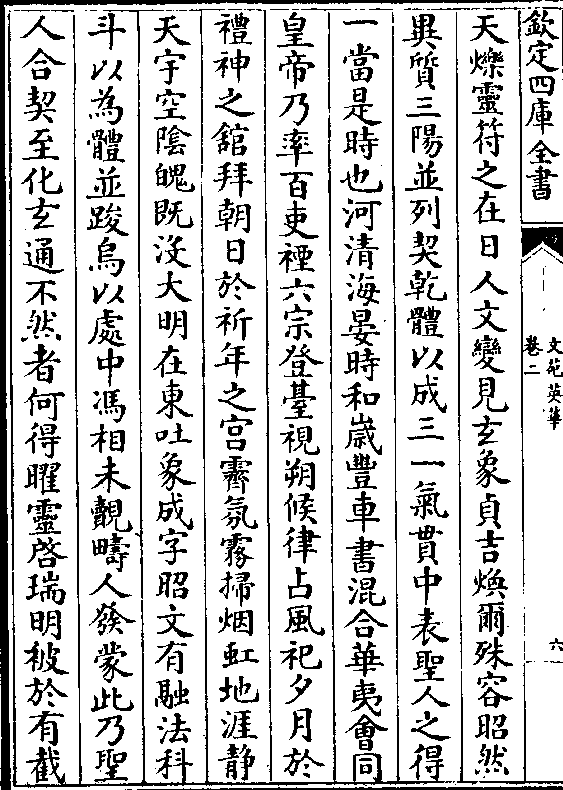 欽定四庫全書
文苑英華
卷二
六
天爍靈符之在日人文變見玄象貞吉煥爾殊容昭然
異質三陽並列契乾體以成三一氣貫中表聖人之得
一當是時也河清海晏時和嵗豐車書混合華夷會同
皇帝乃率百吏禋六宗登臺視朔候律占風祀夕月於
禮神之舘拜朝日於祈年之宫霽氛霧掃烟虹地涯静
天宇空陰魄既沒大明在東吐象成字昭文有融法科
斗以為體並踆烏以處中馮相未覩疇人發蒙此乃聖
人合契至化玄通不然者何得曜靈啓瑞明被於有截